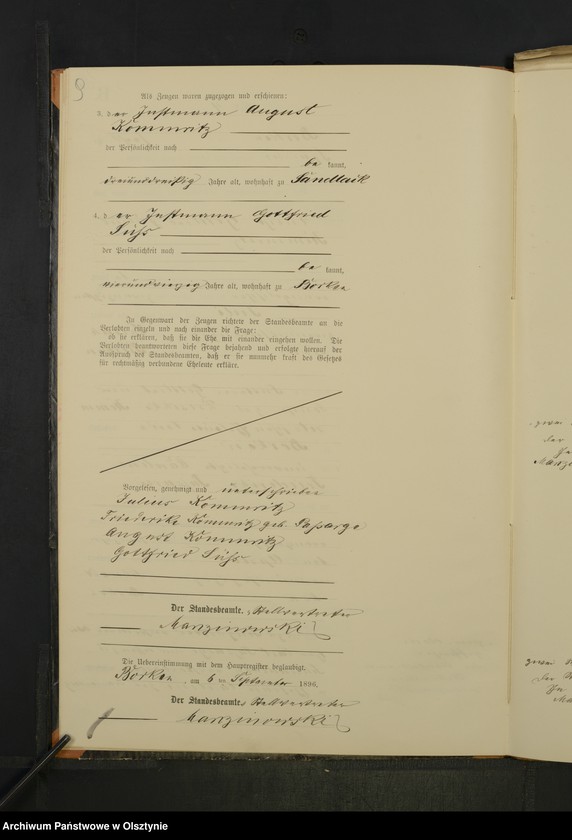 9
Als Zeugen waren zugezogen und erschienen:
3. der Instmann August
Kommritz
der Persönlichkeit nach
be kannt,
dreiunddreißig Jahre alt, wohnhaft zu Sandlack
4. der Instmann Gottfried
der Persönlichkeit nach
be kannt,
vierundvierzig Jahre alt, wohnhaft zu Borken
In Gegenwart der Zeugen richtete der Standesbeamte an die
Verlobten einzeln und nach einander die Frage:
ob sie erklären, daß sie die Ehe mit einander eingehen wollen. Die
Verlobten beantworteten diese Frage bejahend und erfolgte hierauf der
Ausspruch des Standesbeamten, daß er sie nunmehr kraft des Gesetzes
für rechtmäßig verbundene Eheleute erkläre.
Vorgelesen, genehmigt und unterschrieben
Julius Kommritz
Friederike Kommritz geb.
August Kommritz
Gottfried
Der Standesbeamte. Stellvertreter
Marzinowski
Die Uebereinstimmung mit dem Hauptregister beglaubigt.
Borken, am 6 ten September 1896.
Der Standesbeamte. Stellvertreter
Marzinowski
zwei
der
Marz
zwei
Ma
Archiwum Państwowe w Olsztynie